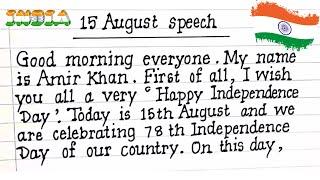 INDIA
15 August speech
Good morning everyone. My name
is Amir Khan. First of all, I wish
you all a very ‘Happy Independence
Day’. Today is 15th August and we
are celebrating 78th Independence
Day of our country. On this day,